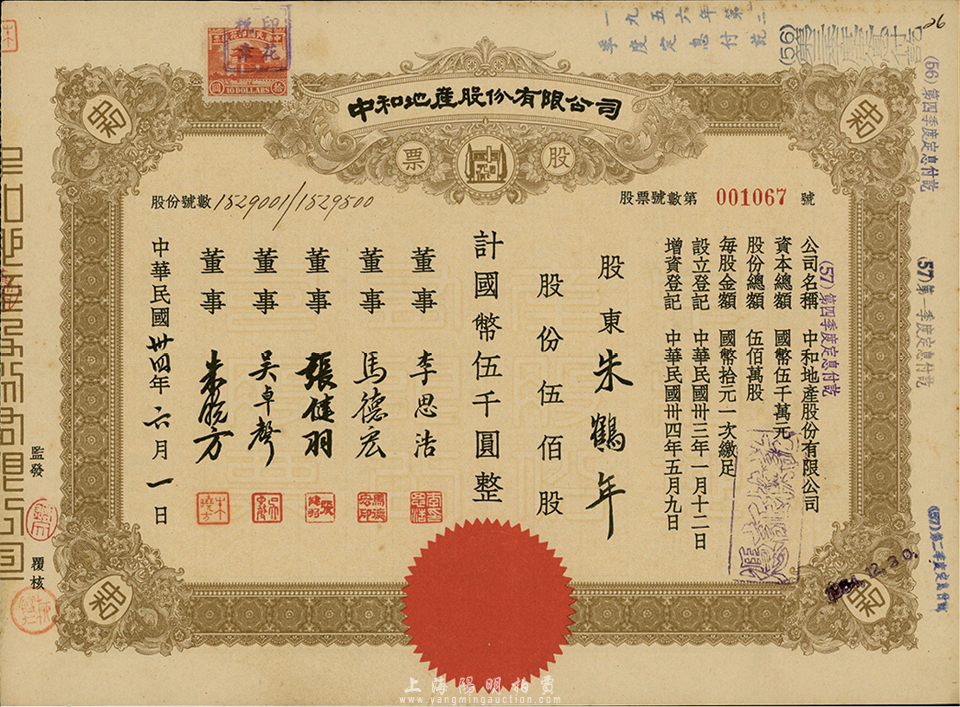 中和地產股份有限公司
股票
股票號數第 001067 號
股份號數 1529001/1529500
公司名稱 中和地產股份有限公司
資本總額 國幣伍千萬元
股份總額 伍佰萬股
每股金額 國幣拾元一次繳足
設立登記 中華民國卅三年一月十二日
增資登記 中華民國卅四年五月九日
股東 朱鶴年
股份伍佰股
計國幣伍千圓整
董事 李思浩
董事 馬德宏
董事 張健羽
董事 吳卓聲
董事 朱曉方
中華民國卅四年六月一日
監發
覆核
和
和
和
和
10 DOLLARS
圓 拾
印花
一九五六年第
季度定息付訖
(56)
(56) 第四季度定息付訖
(57) 第一季度定息付訖
(57) 第二季度定息付訖
(57) 第四季度定息付訖
26
12.20.
上海陽明拍賣
www.yangmingauction.com